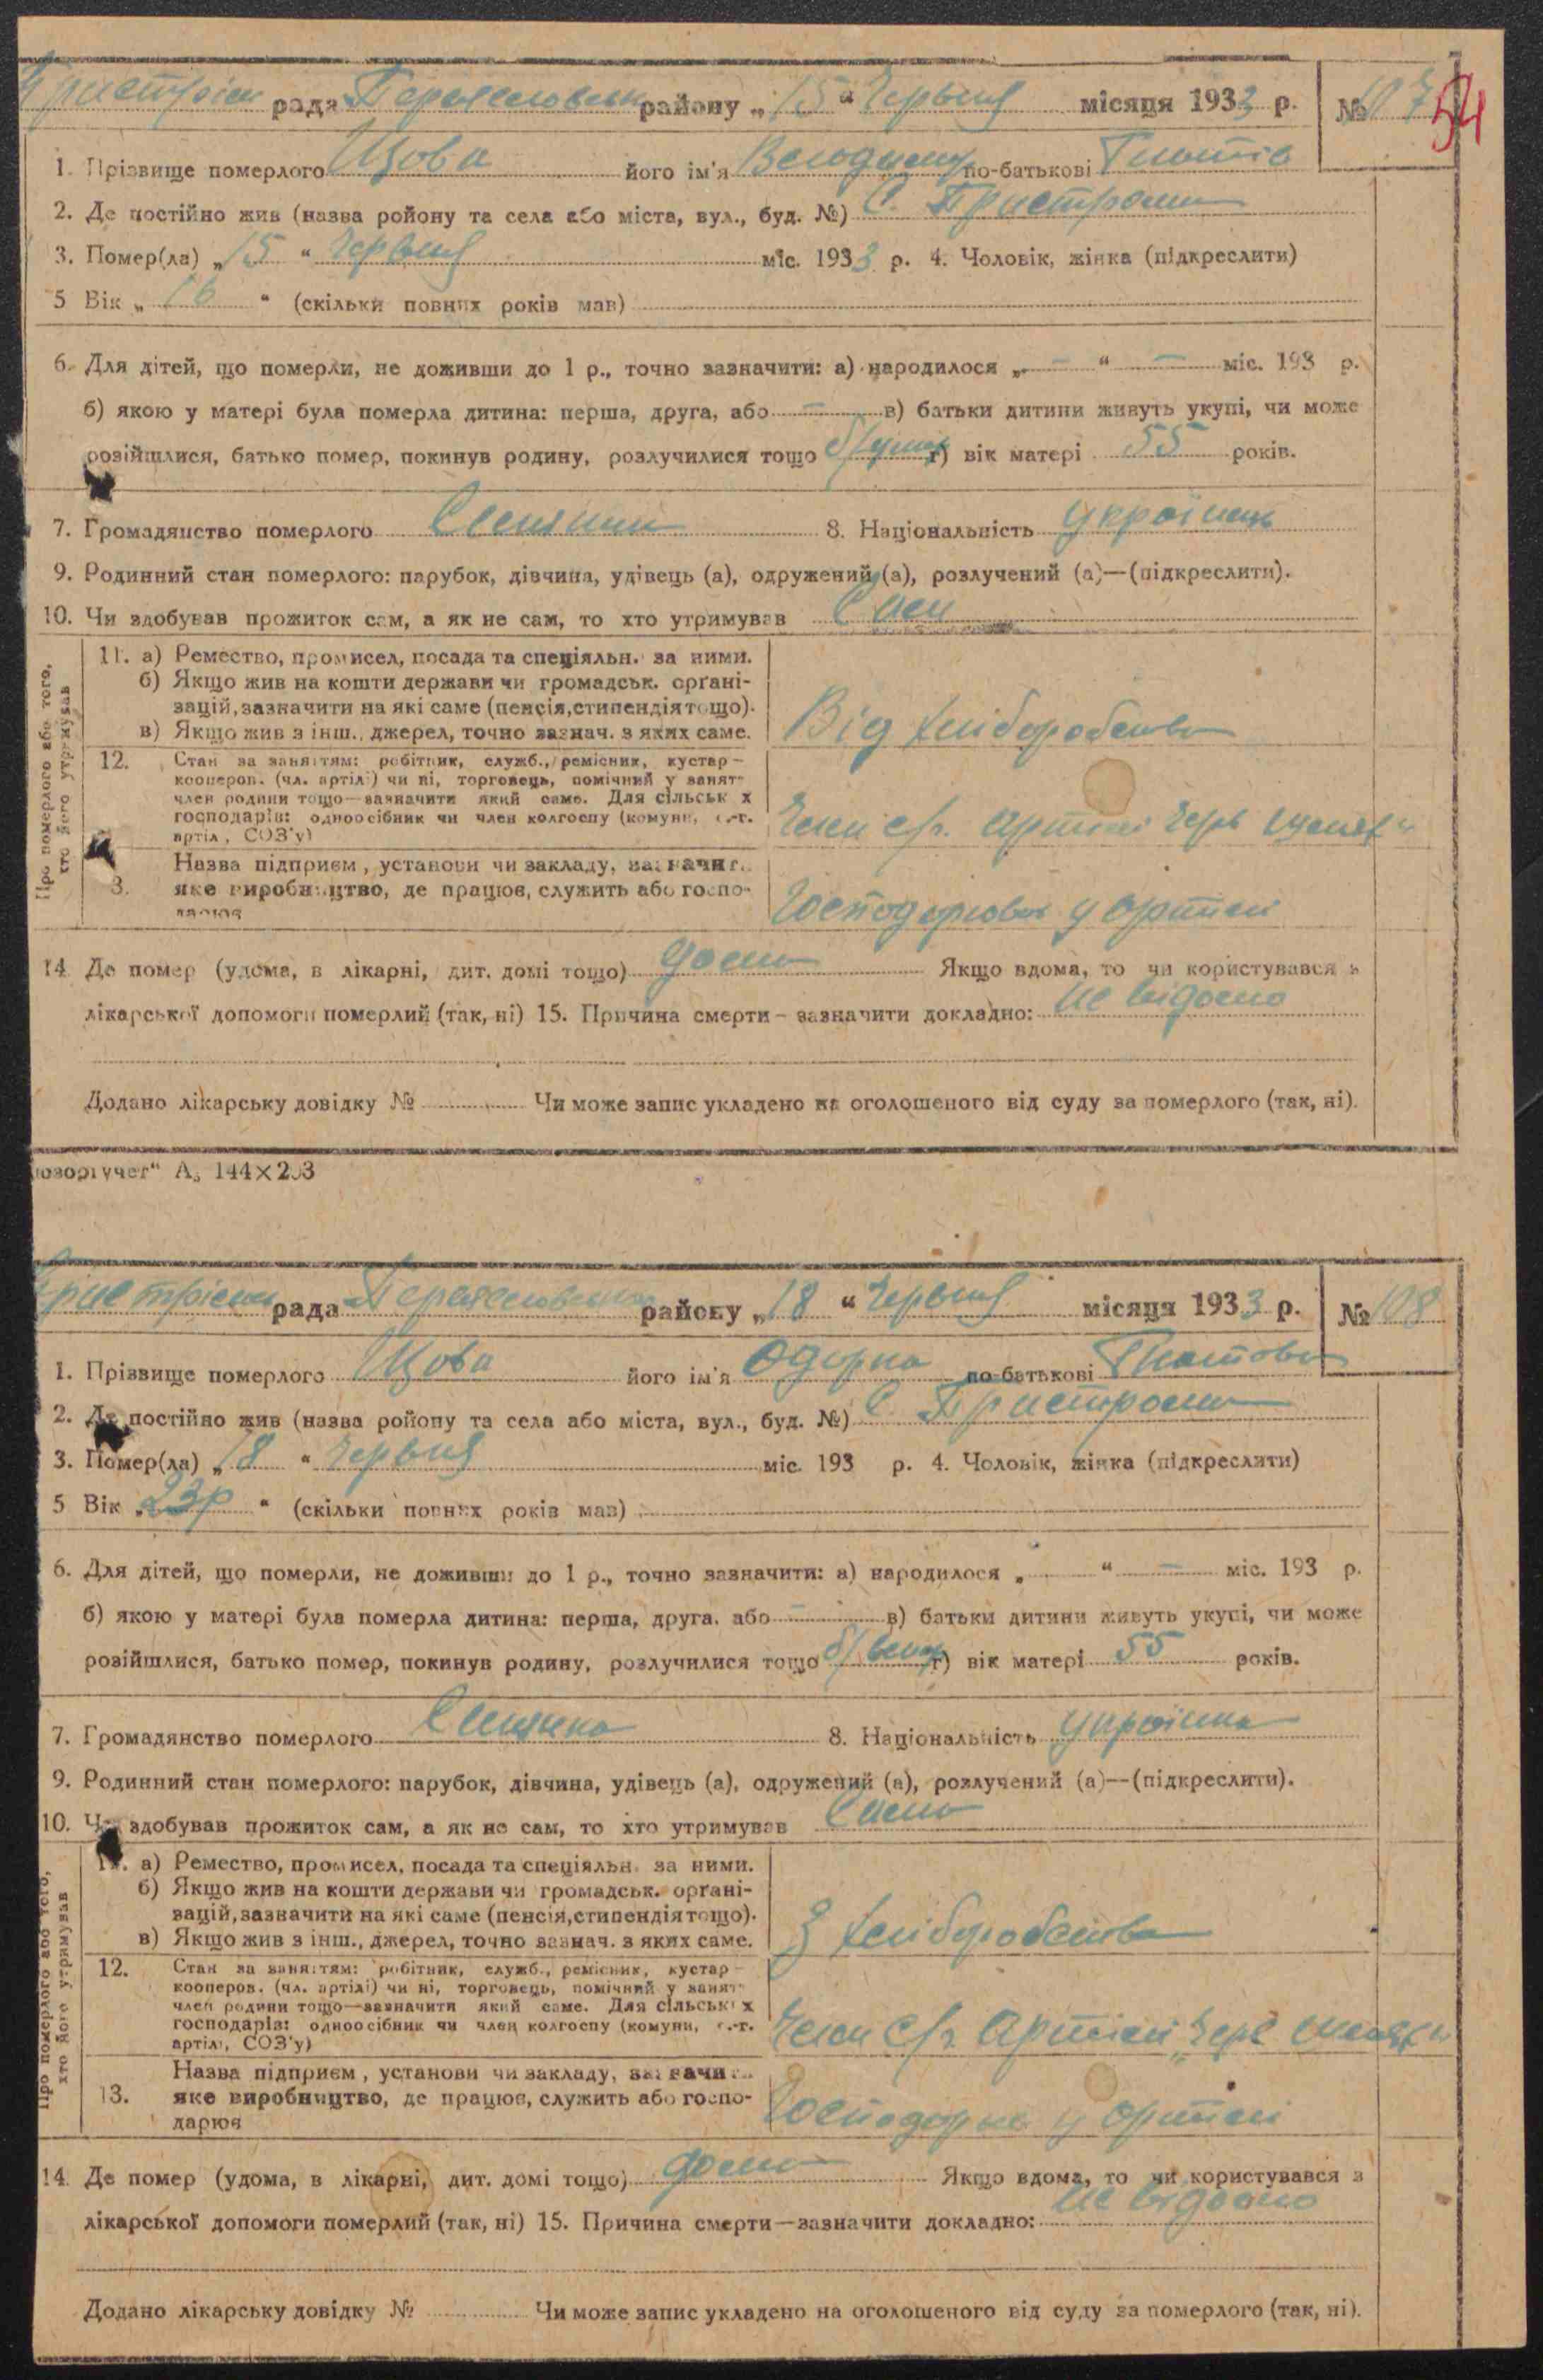 Пристрімс рада Переяславськ району „15“ Червня місяця 1933 р. № 107 54
1. Прізвище померлого Щова його ім'я Володимир по-батькові Гнатів
2. Де постійно жив (назва ройону та села або міста, вул., буд. №) С. Пристроми
3. Помер(ла) „15“ Червня міс. 1933 р. 4. Чоловік, жінка (підкреслити)
5 Вік „16“ (скільки повних років мав)
6. Для дітей, що померли, не доживши до 1 р., точно зазначити: а) народилося „ — “ — міс. 193 р.
б) якою у матері була померла дитина: перша, друга, або — в) батьки дитини живуть укупі, чи може
розійшлися, батько помер, покинув родину, розлучилися тощо г) вік матері 55 років.
7. Громадянство померлого Селянин 8. Національність Українець
9. Родинний стан померлого: парубок, дівчина, удівець (а), одружений (а), розлучений (а)—(підкреслити).
10. Чи здобував прожиток сам, а як не сам, то хто утримував Сам
Про померлого або того, хто його утримував
11. а) Ремество, промисел, посада та спеціяльн. за ними.
б) Якщо жив на кошти держави чи громадськ. орґані-
зацій, зазначити на які саме (пенсія, стипендія тощо).
в) Якщо жив з інш., джерел, точно зазнач. з яких саме.
Від хліборобства
12. Стан за заняттям: робітник, служб., ремісник, кустар —
коопероп. (чл. артілі) чи ні, торговець, помічний у занят-
член родини тощо—зазначити який саме. Для сільськ х
господарів: одноосібник чи член колгоспу (комуни, с.-г.
артіл, СОЗ'у)
Член с/г. Артілі Черв
3. Назва підприєм, установи чи закладу, зазначит.
яке виробництво, де працює, служить або госпо-
дарює
Господарював у артілі
14. Де помер (удома, в лікарні, дит. домі тощо) дома Якщо вдома, то чи користувався з
лікарської допомоги померлий (так, ні) 15. Причина смерти — зазначити докладно: не відомо
Додано лікарську довідку № Чи може запис укладено на оголошеного від суду за померлого (так, ні).
А5 144×203
рада Переяславськ району „18“ Червня місяця 1933 р. № 108
1. Прізвище померлого Щова його ім'я Одарка по-батькові Гнатова
2. Де постійно жив (назва ройону та села або міста, вул., буд. №) С. Пристроми
3. Помер(ла) „18“ Червня міс. 193 р. 4. Чоловік, жінка (підкреслити)
5 Вік „23р“ (скільки повних років мав)
6. Для дітей, що померли, не доживши до 1 р., точно зазначити: а) народилося „ “ — міс. 193 р.
б) якою у матері була померла дитина: перша, друга, або — в) батьки дитини живуть укупі, чи може
розійшлися, батько помер, покинув родину, розлучилися тощо г) вік матері 55 років.
7. Громадянство померлого Селянка 8. Національність Українка
9. Родинний стан померлого: парубок, дівчина, удівець (а), одружений (а), розлучений (а)—(підкреслити).
10. Чи здобував прожиток сам, а як не сам, то хто утримував Сама
Про померлого або того, хто його утримував
11. а) Ремество, промисел, посада та спеціяльн. за ними.
б) Якщо жив на кошти держави чи громадськ. орґані-
зацій, зазначити на які саме (пенсія, стипендія тощо).
в) Якщо жив з інш., джерел, точно зазнач. з яких саме.
З хліборобства
12. Стан за заняттям: робітник, служб., ремісник, кустар —
кооперов. (чл. артілі) чи ні, торговець, помічний у занят-
член родини тощо—зазначити який саме. Для сільських
господарів: одноосібник чи член колгоспу (комуни, с.-г.
артілі, СОЗ'у)
Член с/г. Артілі „Черв
13. Назва підприєм, установи чи закладу, зазначи
яке виробництво, де працює, служить або госпо-
дарює
Господарює у артілі
14. Де помер (удома, в лікарні, дит. домі тощо) дома Якщо вдома, то чи користувався з
лікарської допомоги померлий (так, ні) 15. Причина смерти—зазначити докладно: не відомо
Додано лікарську довідку № Чи може запис укладено на оголошеного від суду за померлого (так, ні).